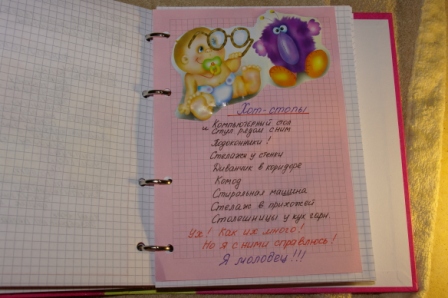 Хот-споты
Компьютерный стол
и Стул рядом с ним
Подоконники!
Стеллаж у стенки
Диванчик в коридоре
Комод
Стиральная машина
Стелаж в прихожей
Столешницы у кух. гарн.
Уж! Как их много!
Но я с ними справлюсь!
Я молодец!!!